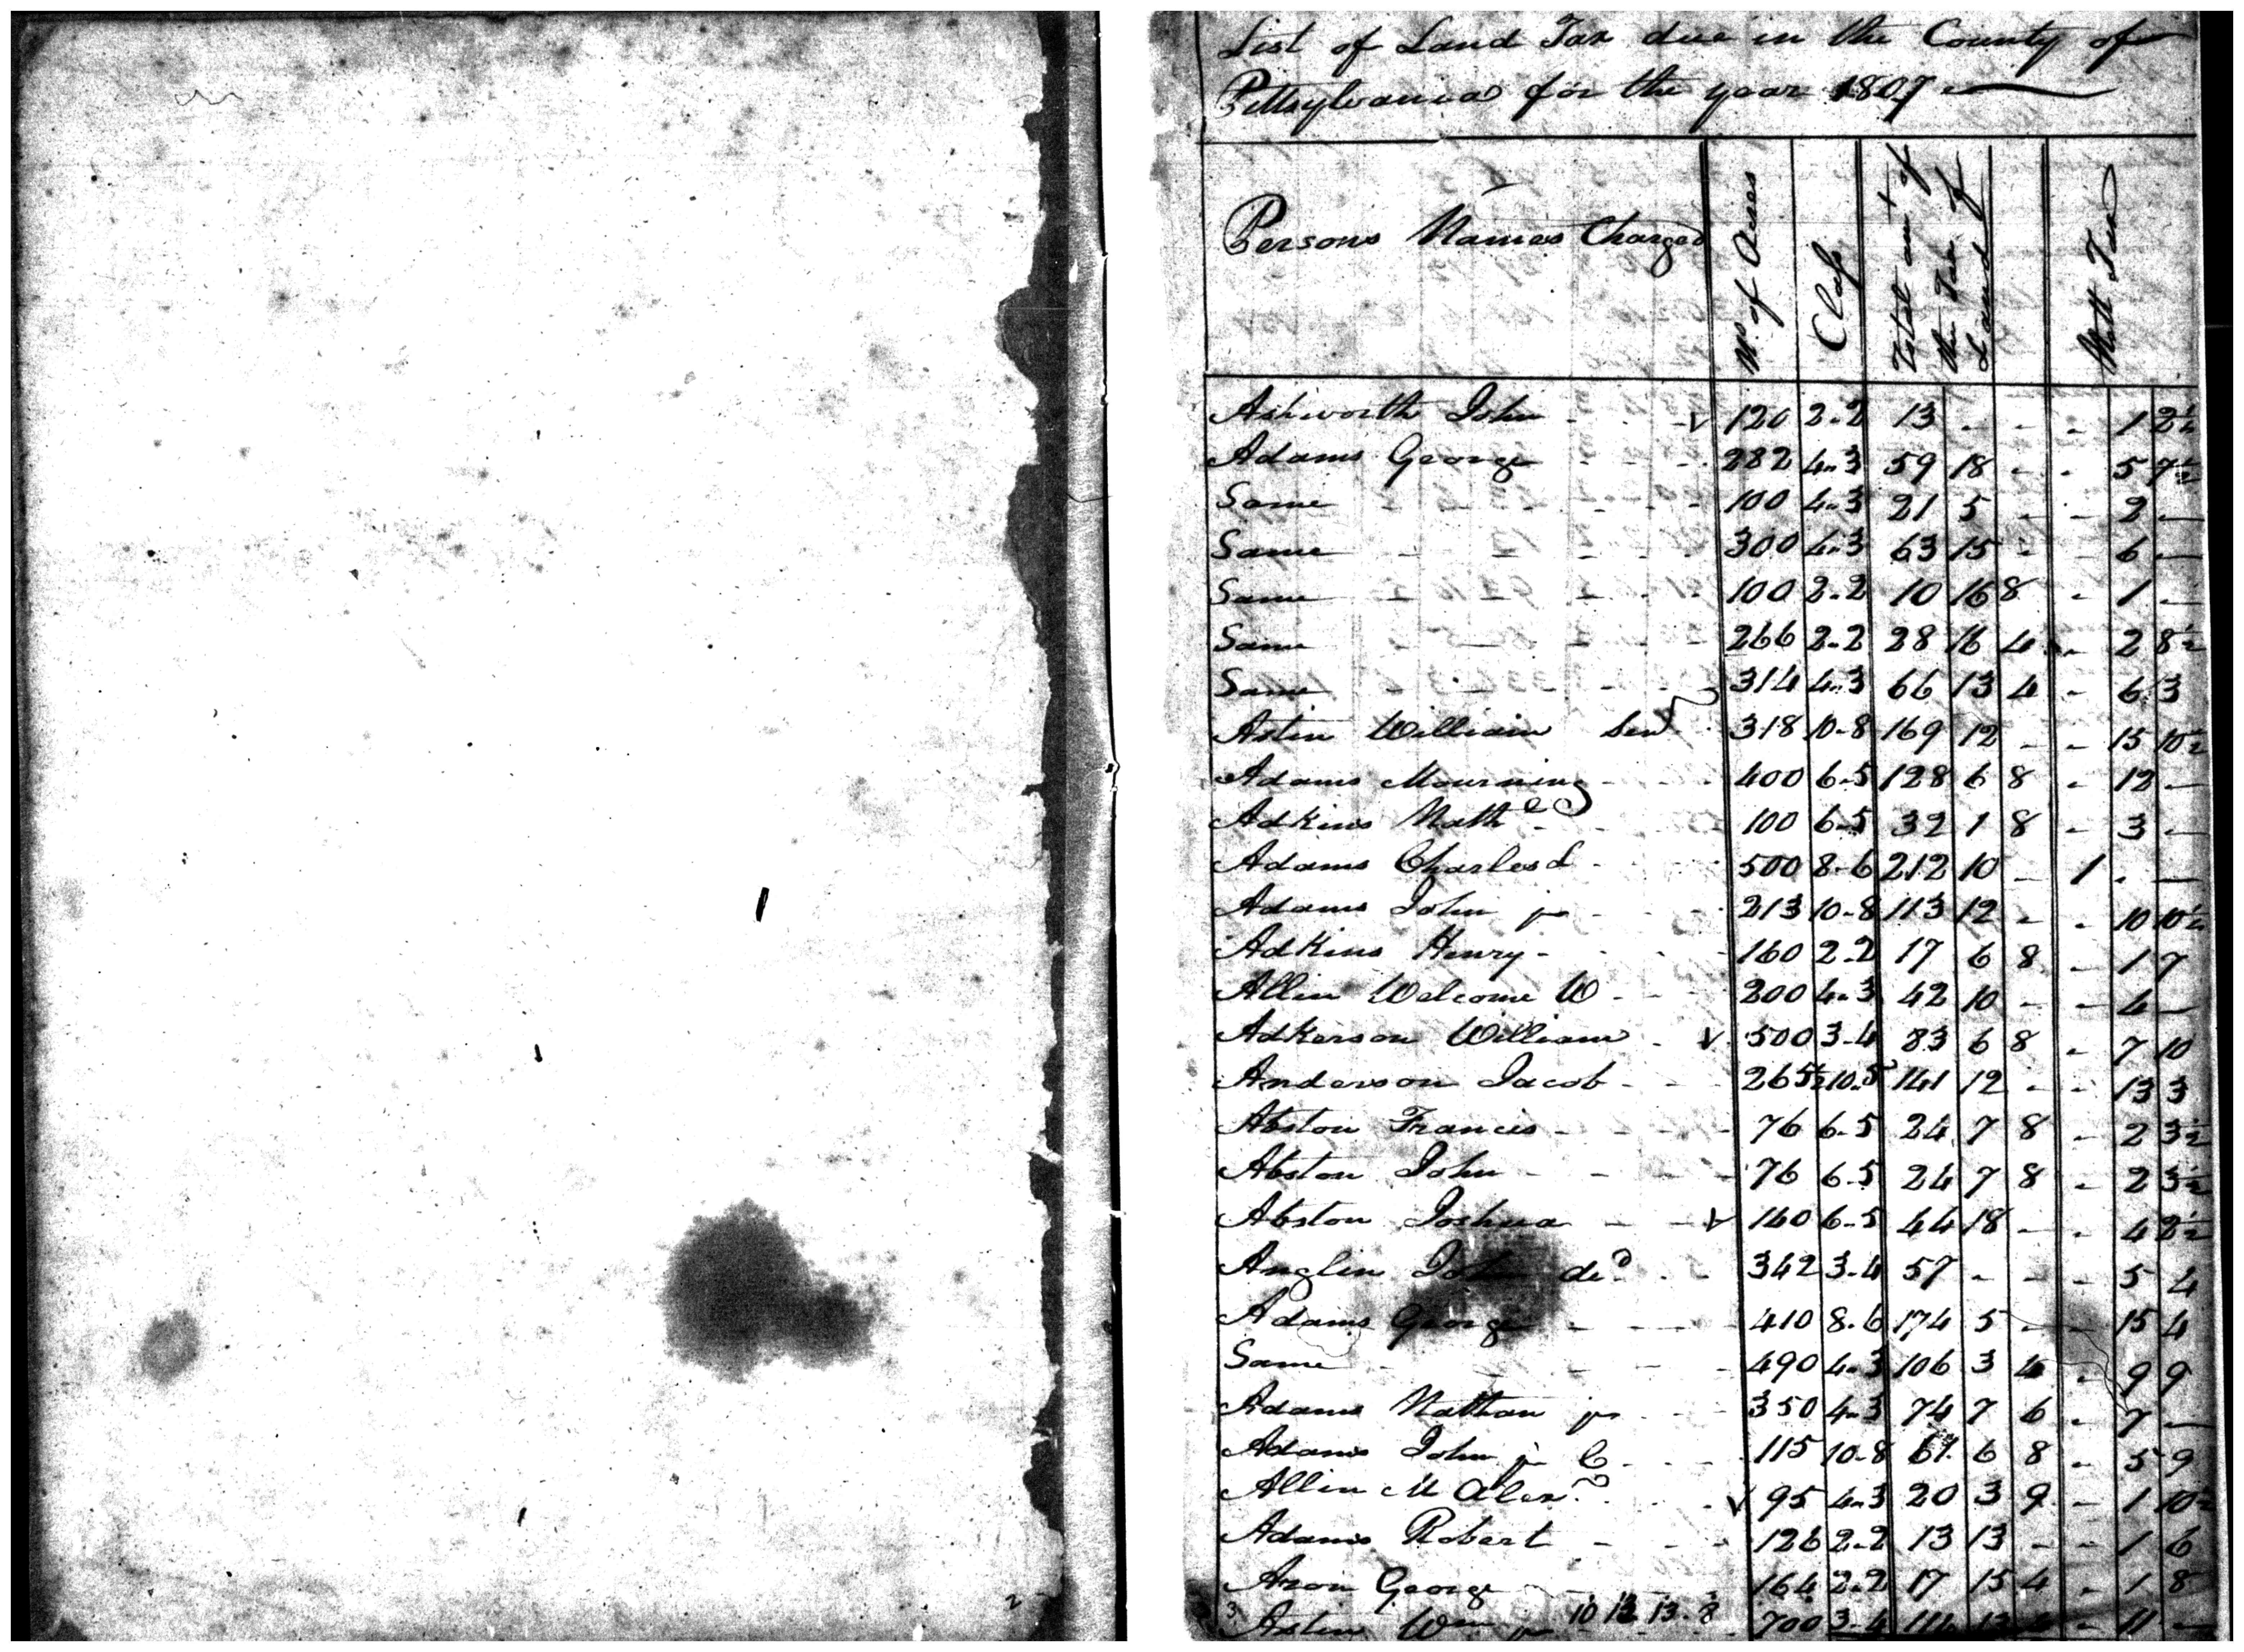 List of Land Tax due in the County of
Pittsylvania for the year 1807
Persons Names Charged No of Acres Class Total amt of the Tax of Land Nett Tax
Ashworth John - - - v 120 2-2 13 - - - 1 2½
Adams George - - - 282 4-3 59 18 - - 5 7½
Same - - - 100 4-3 21 5 - - 2 -
Same - - - 300 4-3 63 15 - - 6 -
Same - - - 100 2-2 10 16 8 - 1 -
Same - - - 266 2-2 28 16 4 - 2 8½
Same - - - 314 4-3 66 13 4 - 6 3
Astin William Senr 318 10-8 169 12 - - 15 10½
Adams Mourning - - - 400 6-5 128 6 8 - 12 -
Adkins Nathl - - - 100 6-5 32 1 8 - 3 -
Adams Charles L - - - 500 8-6 212 10 - 1 - -
Adams John jr - - - 213 10-8 113 12 - - 10 10½
Adkins Henry - - - 160 2-2 17 6 8 - 1 7
Allin Welcome W - - - 200 4-3 42 10 - - 4 -
Adkerson William - v 500 3-4 83 6 8 - 7 10
Anderson Jacob - - - 265½ 10-5 141 12 - - 13 3
Abston Francis - - - 76 6-5 24 7 8 - 2 3½
Abston John - - - 76 6-5 24 7 8 - 2 3½
Abston Joshua - - v 140 6-5 44 18 - - 4 2½
Anglin John decd - - 342 3-4 57 - - - 5 4
Adams George - - - 410 8-6 174 5 - - 15 4
Same - - - 490 4-3 106 3 4 - 9 9
Adams Nathan jr - - - 350 4-3 74 7 6 - 7 -
Adams John jr C - - - 115 10-8 61 6 8 - 5 9
Allin M Alexr - - - v 95 4-3 20 3 9 - 1 10½
Adams Robert - - - 126 2-2 13 13 - - 1 6
Aron George 164 2-2 17 15 4 - 1 8
3 10 12 13-8
Astin Wm jr - - - 700 3-4 - 11 -
2